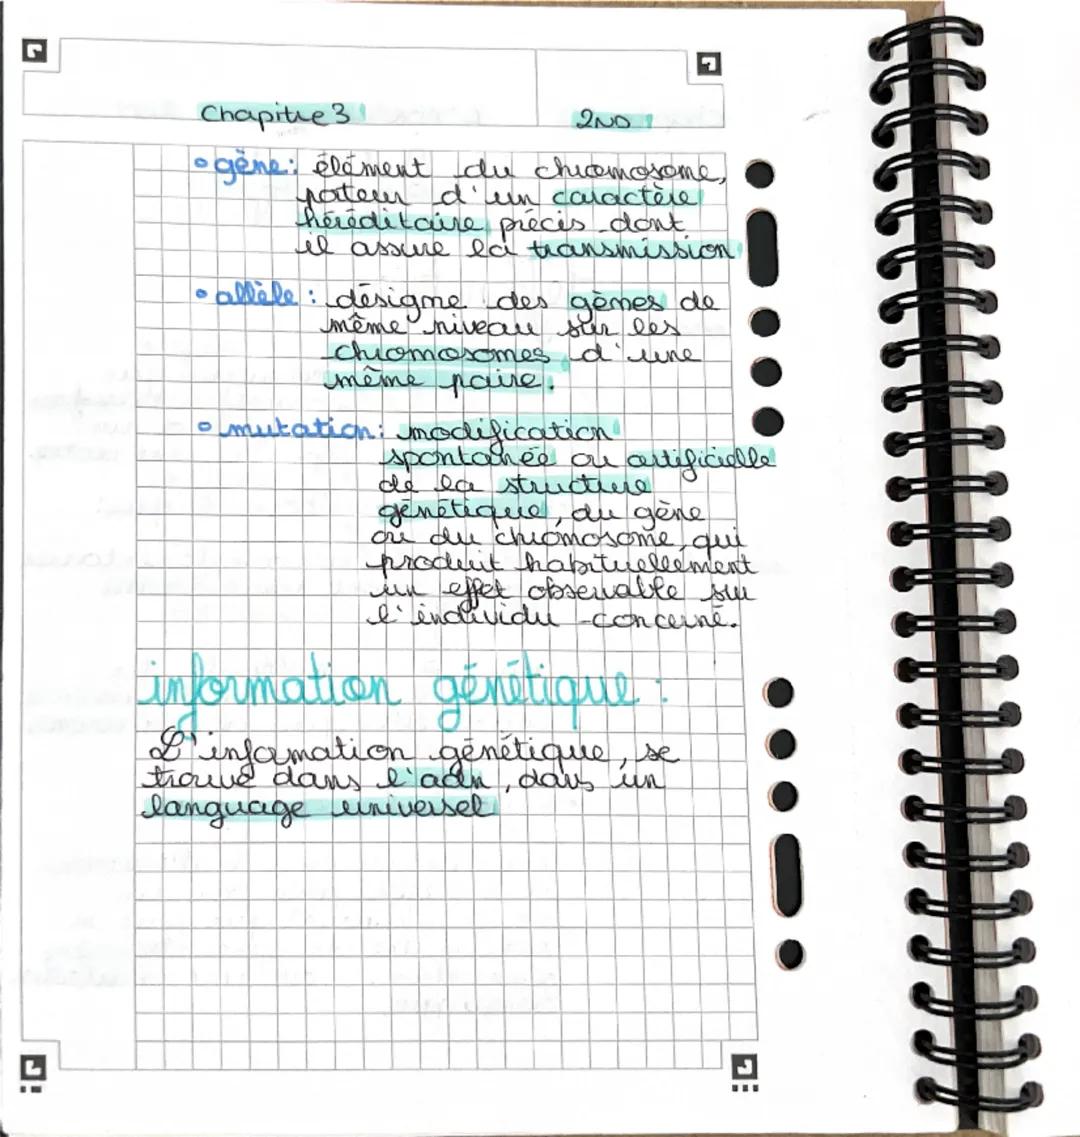 Chapitre 3
2ND
• gène : élément du chromosome,
porteur d'un caractère
héréditaire précis dont
il assure la transmission
• allèle : désigne des gènes de
même niveau sur les
chromosomes d'une
même paire.
• mutation : modification
spontanée ou artificielle
de la structure
génétique, du gène
ou du chromosome, qui
produit habituellement
un effet observable sur
l'individu concerné.
information génétique :
L'information génétique, se
trouve dans l'adn, dans un
language universel